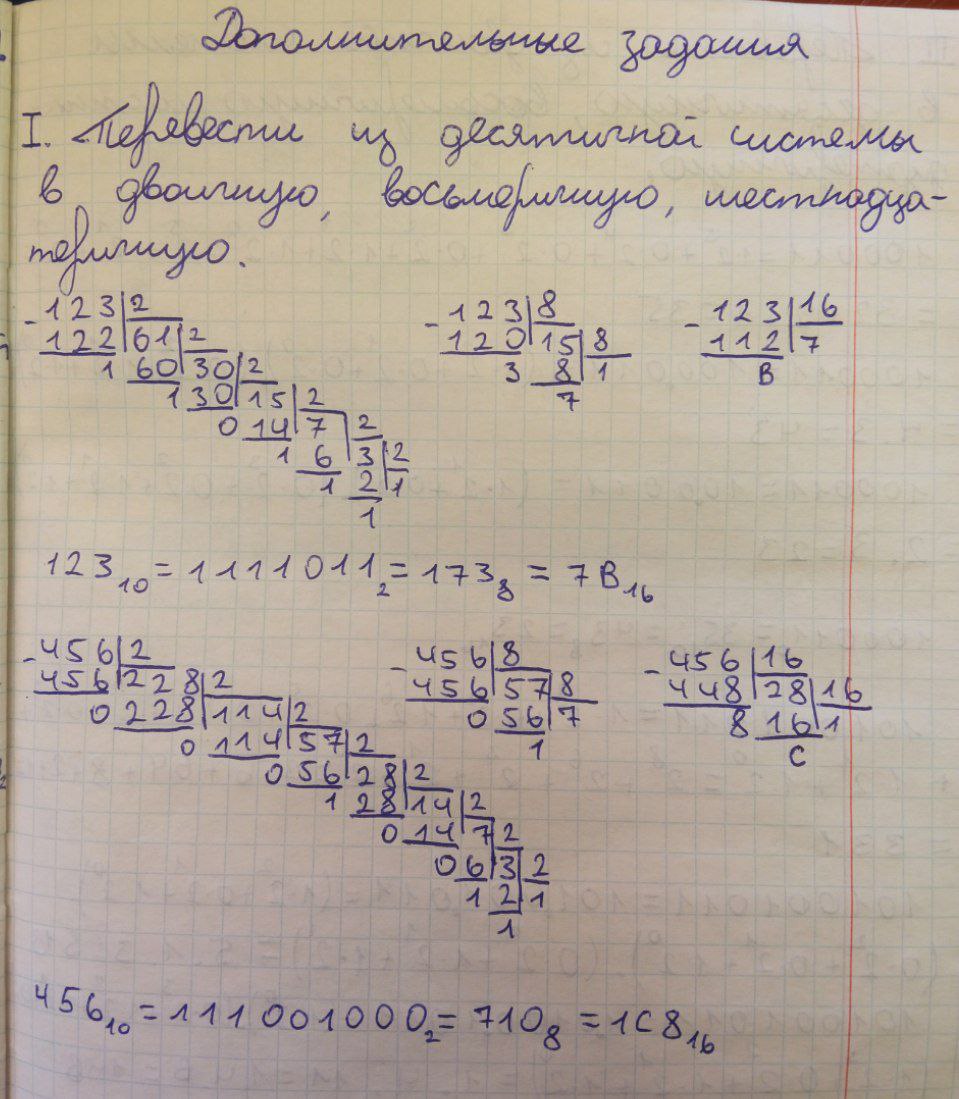 Дополнительные задания
I. Перевести из десятичной системы
в двоичную, восьмеричную, шестнадца-
теричную.
-123|2
122|61|2
1 60|30|2
1 30|15|2
0 14|7|2
1 6|3|2
1 2|1
1
-123|8
120|15|8
3 8|1
7
-123|16
112|7
B
123₁₀ = 1111011₂ = 173₈ = 7B₁₆
-456|2
456|228|2
0 228|114|2
0 114|57|2
0 56|28|2
1 28|14|2
0 14|7|2
0 6|3|2
1 2|1
1
-456|8
456|57|8
0 56|7
1
-456|16
448|28|16
8 16|1
C
456₁₀ = 111001000₂ = 710₈ = 1C8₁₆